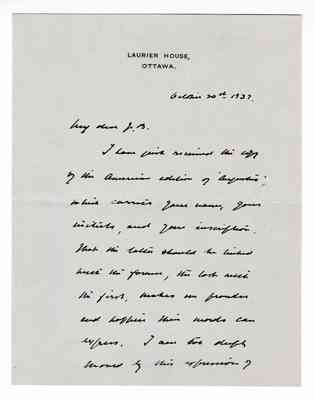 LAURIER HOUSE,
OTTAWA.
October 20th 1937.
My dear J.B.
I have just received the copy
of the American edition of 'Augustus',
which carries your name, your
initials, and your inscription.
That the latter should be linked
with the former, the last with
the first, makes me prouder
and happier than words can
express. I am too deeply
moved by this expression of